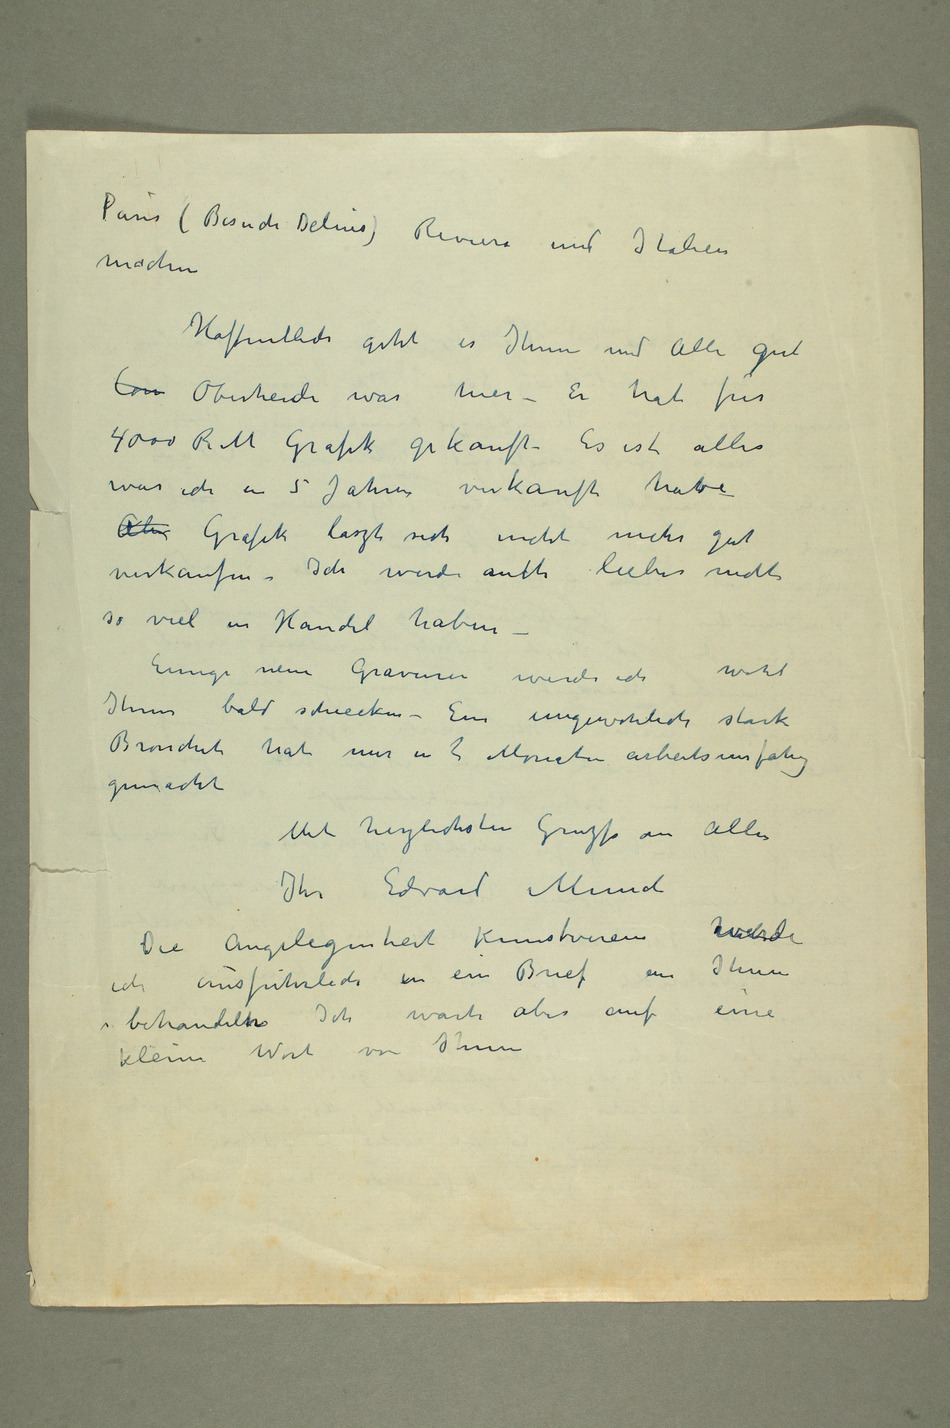 Paris (Besuch Delius) Riviera und Italien
machen
Hoffentlich geht es Ihnen und Alle gut
Oberheide war hier – Er hat fur
4000 RM Grafik gekauft – Es ist alles
was ich in 5 Jahren verkauft habe
Grafik laszt sich nicht mehr gut
verkaufen – Ich werde auch lieber nicht
so viel in Handel haben –
Einige neue Gravuren werde ich wohl
Ihnen bald schiecken – Ein ungewohnlich stark
Bronchit hat mir in 2 Monaten arbeitsunfahig
gemacht
Mit herzlichsten Gruszs an Alle
Ihr Edvard Munch
Die Angelegenheit Kunstverein werde
ich ausfuhrlich in ein Brief an Ihnen
behandeln Ich warte aber auf eine
kleine Wort von Ihnen